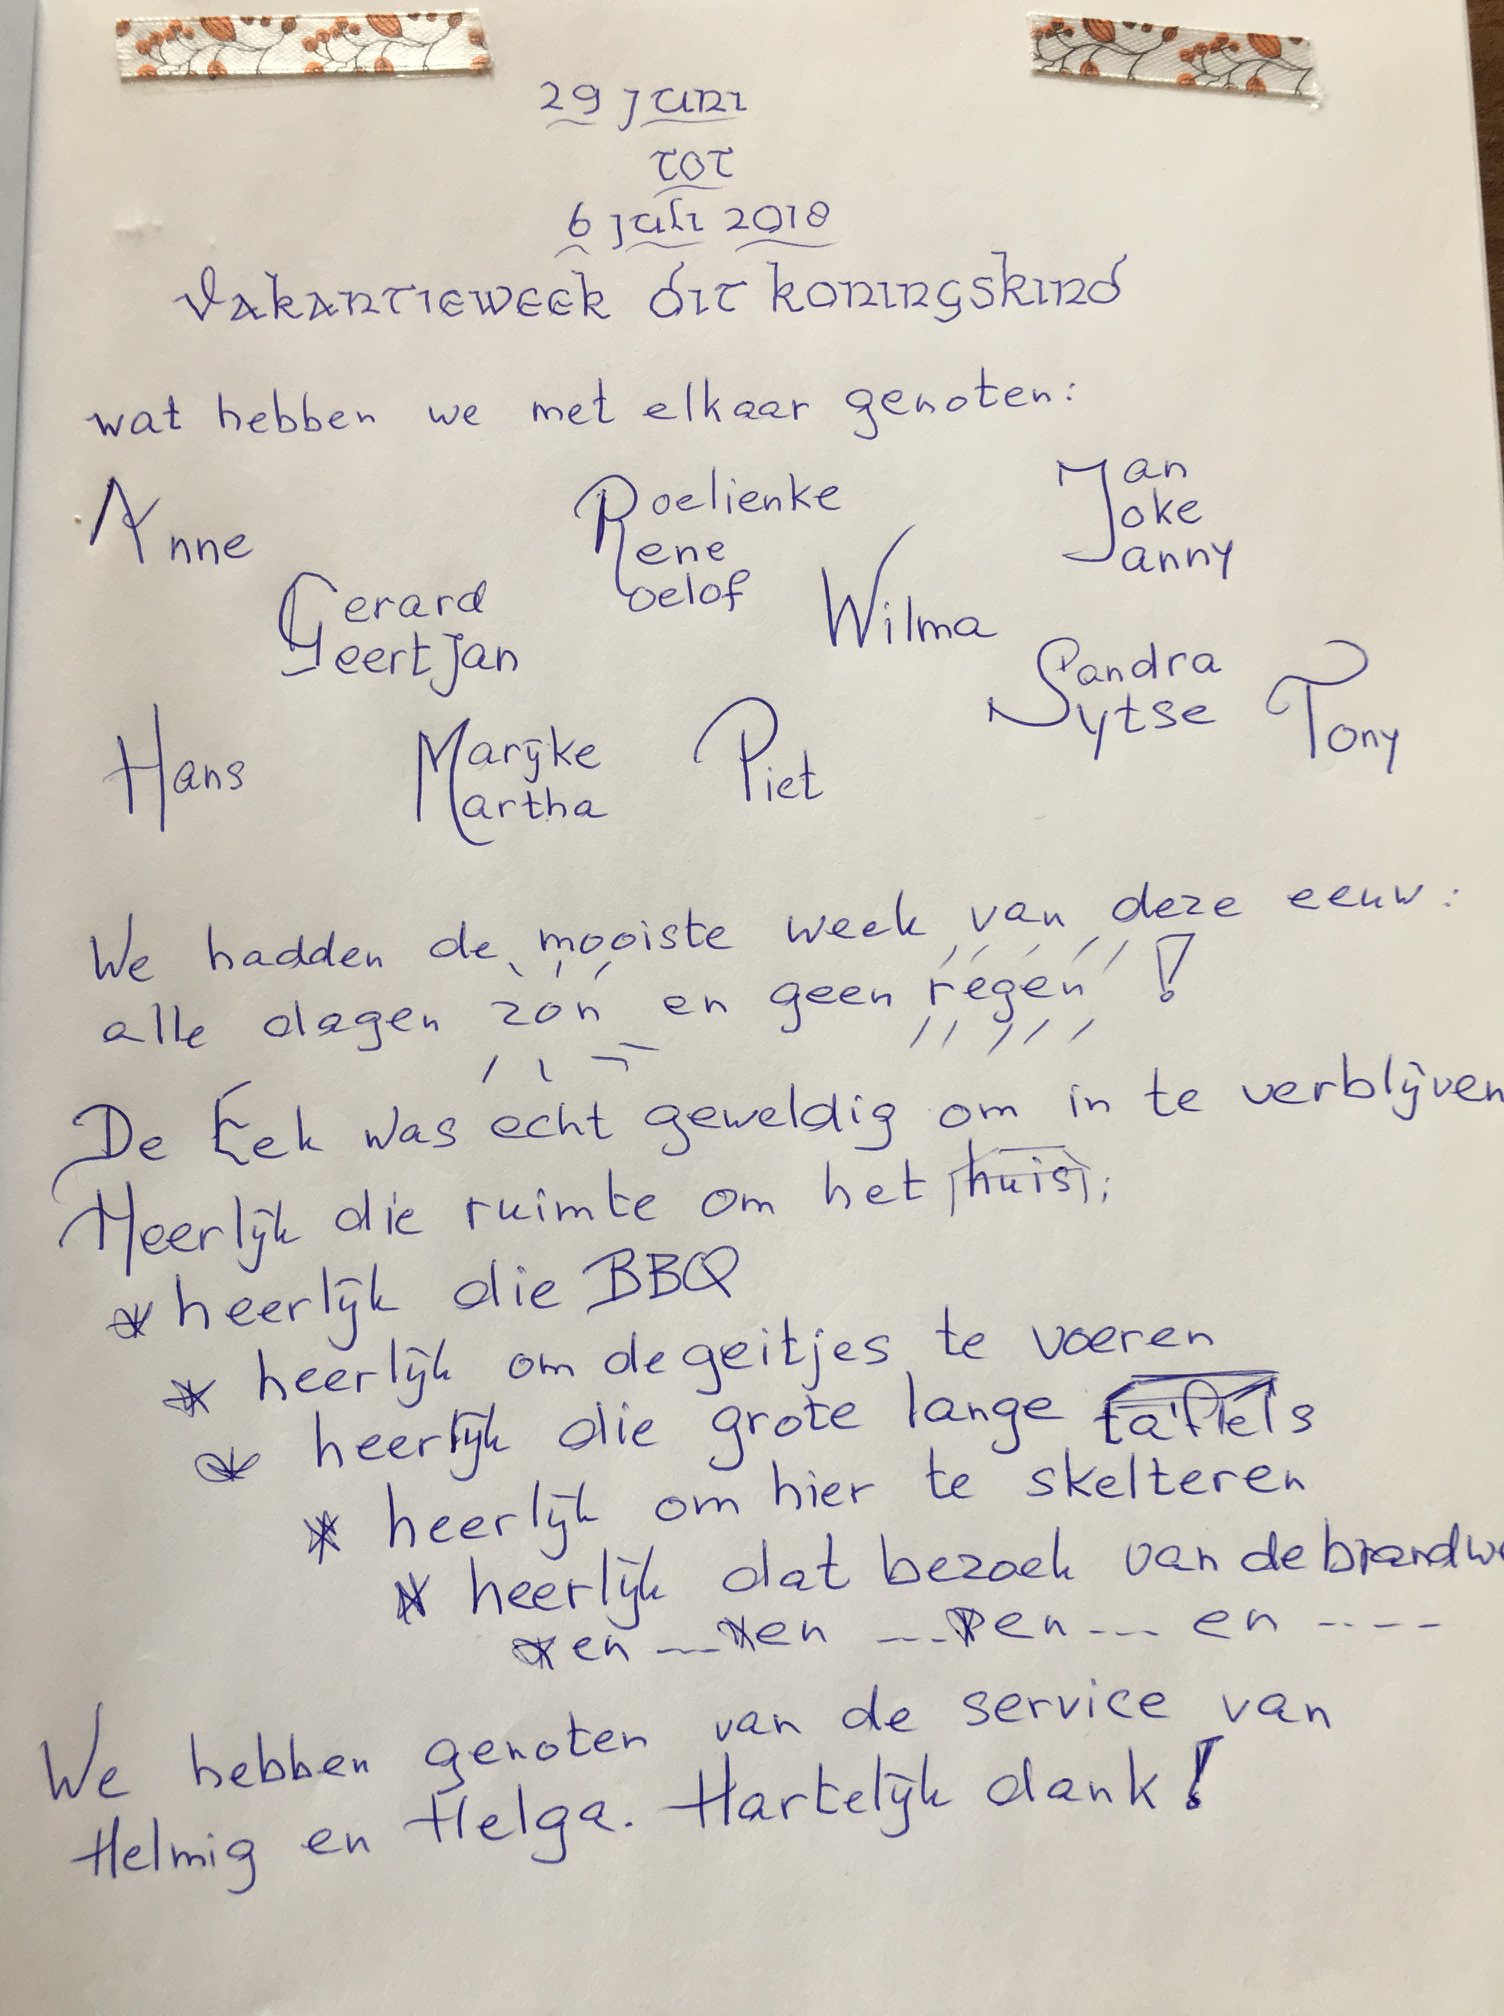 29 juni
tot
6 juli 2018
Vakantieweek dit koningskind
wat hebben we met elkaar genoten:
Anne
Roelienke
Rene
Roelof
Jan
Joke
Janny
Gerard
Geert Jan
Wilma
Sandra
Sytse
Tony
Hans
Marijke
Martha
Piet
We hadden de mooiste week van deze eeuw:
alle dagen zon en geen regen!
De Eek was echt geweldig om in te verblijven
Heerlijk die ruimte om het huis;
* heerlijk die BBQ
* heerlijk om de geitjes te voeren
* heerlijk die grote lange tafels
* heerlijk om hier te skelteren
* heerlijk dat bezoek van de brandwe
* en --- * en --- * en --- en ----
We hebben genoten van de service van
Helmig en Helga. Hartelijk dank!